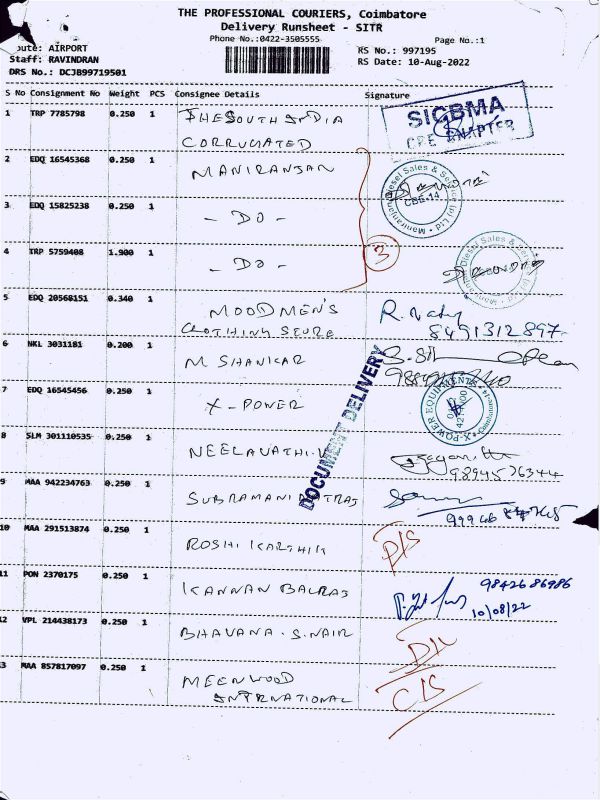 THE PROFESSIONAL COURIERS, Coimbatore
Delivery Runsheet - SITR
Phone No.:0422-3505555
Page No.:1
Route: AIRPORT
RS No.: 997195
Staff: RAVINDRAN
RS Date: 10-Aug-2022
DRS No.: DCJB99719501
S No Consignment No Weight PCS Consignee Details Signature
1 TRP 7785798 0.250 1 THE SOUTH INDIA
CORRUGATED
SICBMA
CBE CHAPTER
2 EDQ 16545368 0.250 1 MANIRANJAN
Maniranjan Diesel Sales & Service (P) Ltd
CBE-14
3 EDQ 15825238 0.250 1 - DO -
4 TRP 5759408 1.900 1 - DO -
3
Diesel Sales & Service
5 EDQ 20568151 0.340 1 MOODMEN'S
CLOTHING STORE
8491312897
6 NKL 3031181 0.200 1 M SHANKAR
DOCUMENT DELIVERY
7 EDQ 16545456 0.250 1 X-POWER
X-POWER EQUIPMENTS
8 SLM 301110535 0.250 1 NEELAVATHI.V
9894576344
9 MAA 942234763 0.250 1 SUBRAMANI
10 MAA 291513874 0.250 1 ROSHI KARTHIK
D/S
11 PON 2370175 0.250 1 KANNAN BALRAJ
9842686986
10/08/22
12 VPL 214438173 0.250 1 BHAVANA.S.NAIR
13 MAA 857817097 0.250 1 MEENWOOD
INTRNATIONAL
C/S